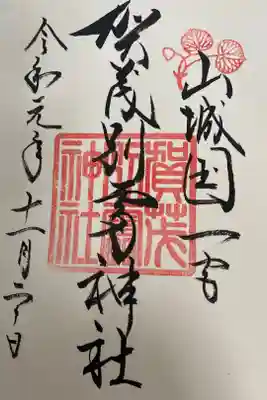 山城国一宮
賀茂別雷神社
賀茂
別雷
神社
令和元年十一月日